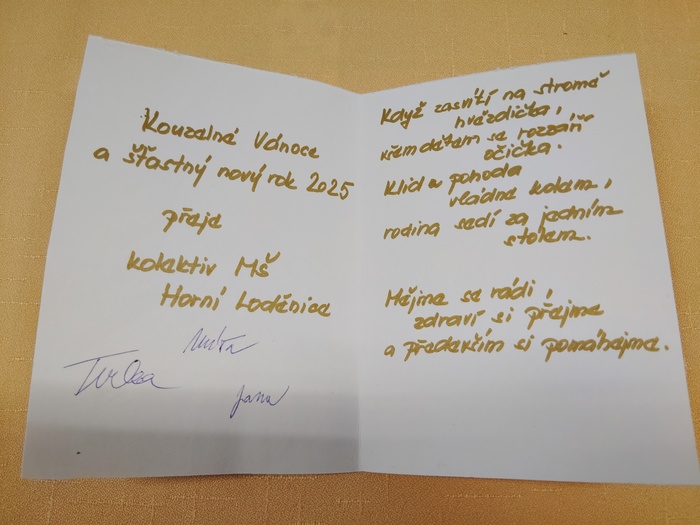 Kouzelné Vánoce
a šťastný nový rok 2025
přeje
kolektiv MŠ
Horní Loděnice
Jana
Když zasvítí na stromě
hvězdička,
všem dětem se rozzáří
očička.
Klid a pohoda
vládne kolem,
rodina sedí za jedním
stolem.
Mějme se rádi,
zdraví si přejme
a především si pomáhejme.